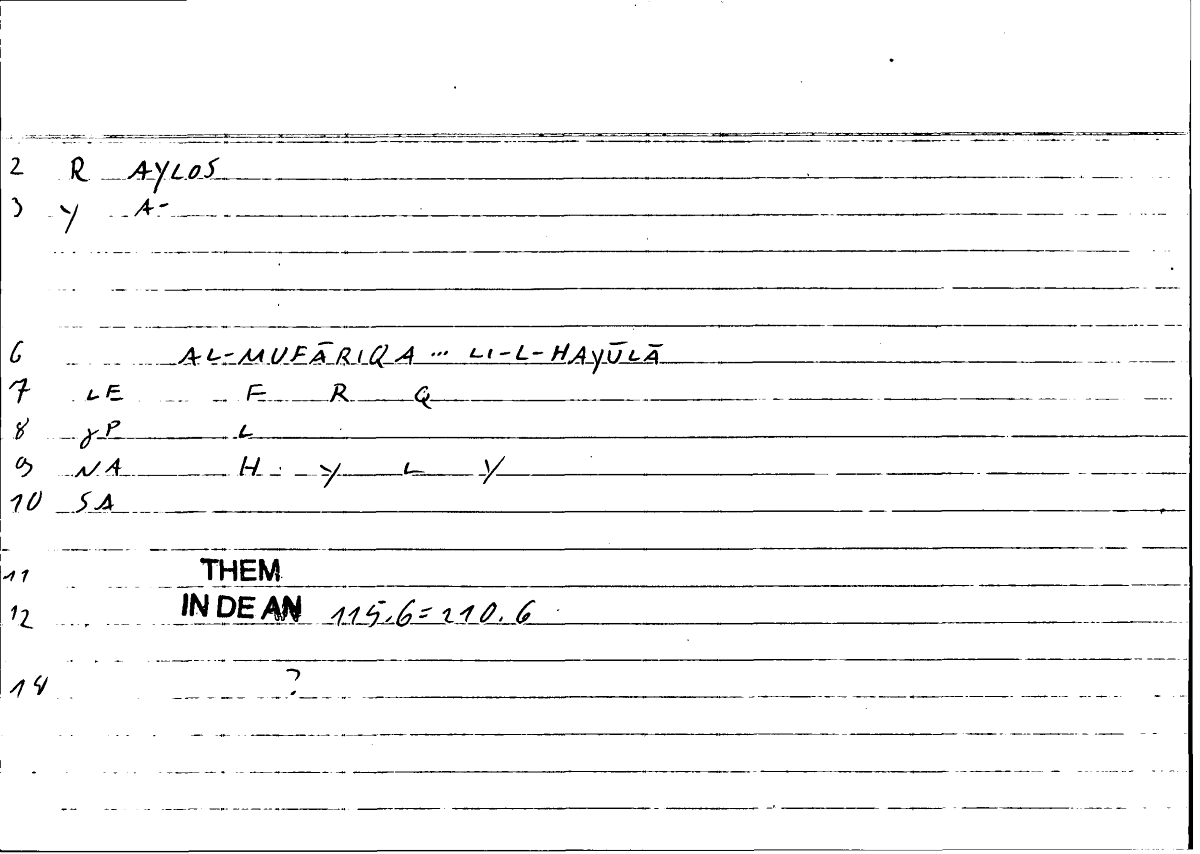 2 R AYLOS
3 Y A-
6 AL-MUFĀRIQA ... LI-L-HAYŪLĀ
7 LE F R Q
8 γP L
9 NA H Y L Y
10 SA
11 THEM
12 IN DE AN 115.6=210.6
14 ?